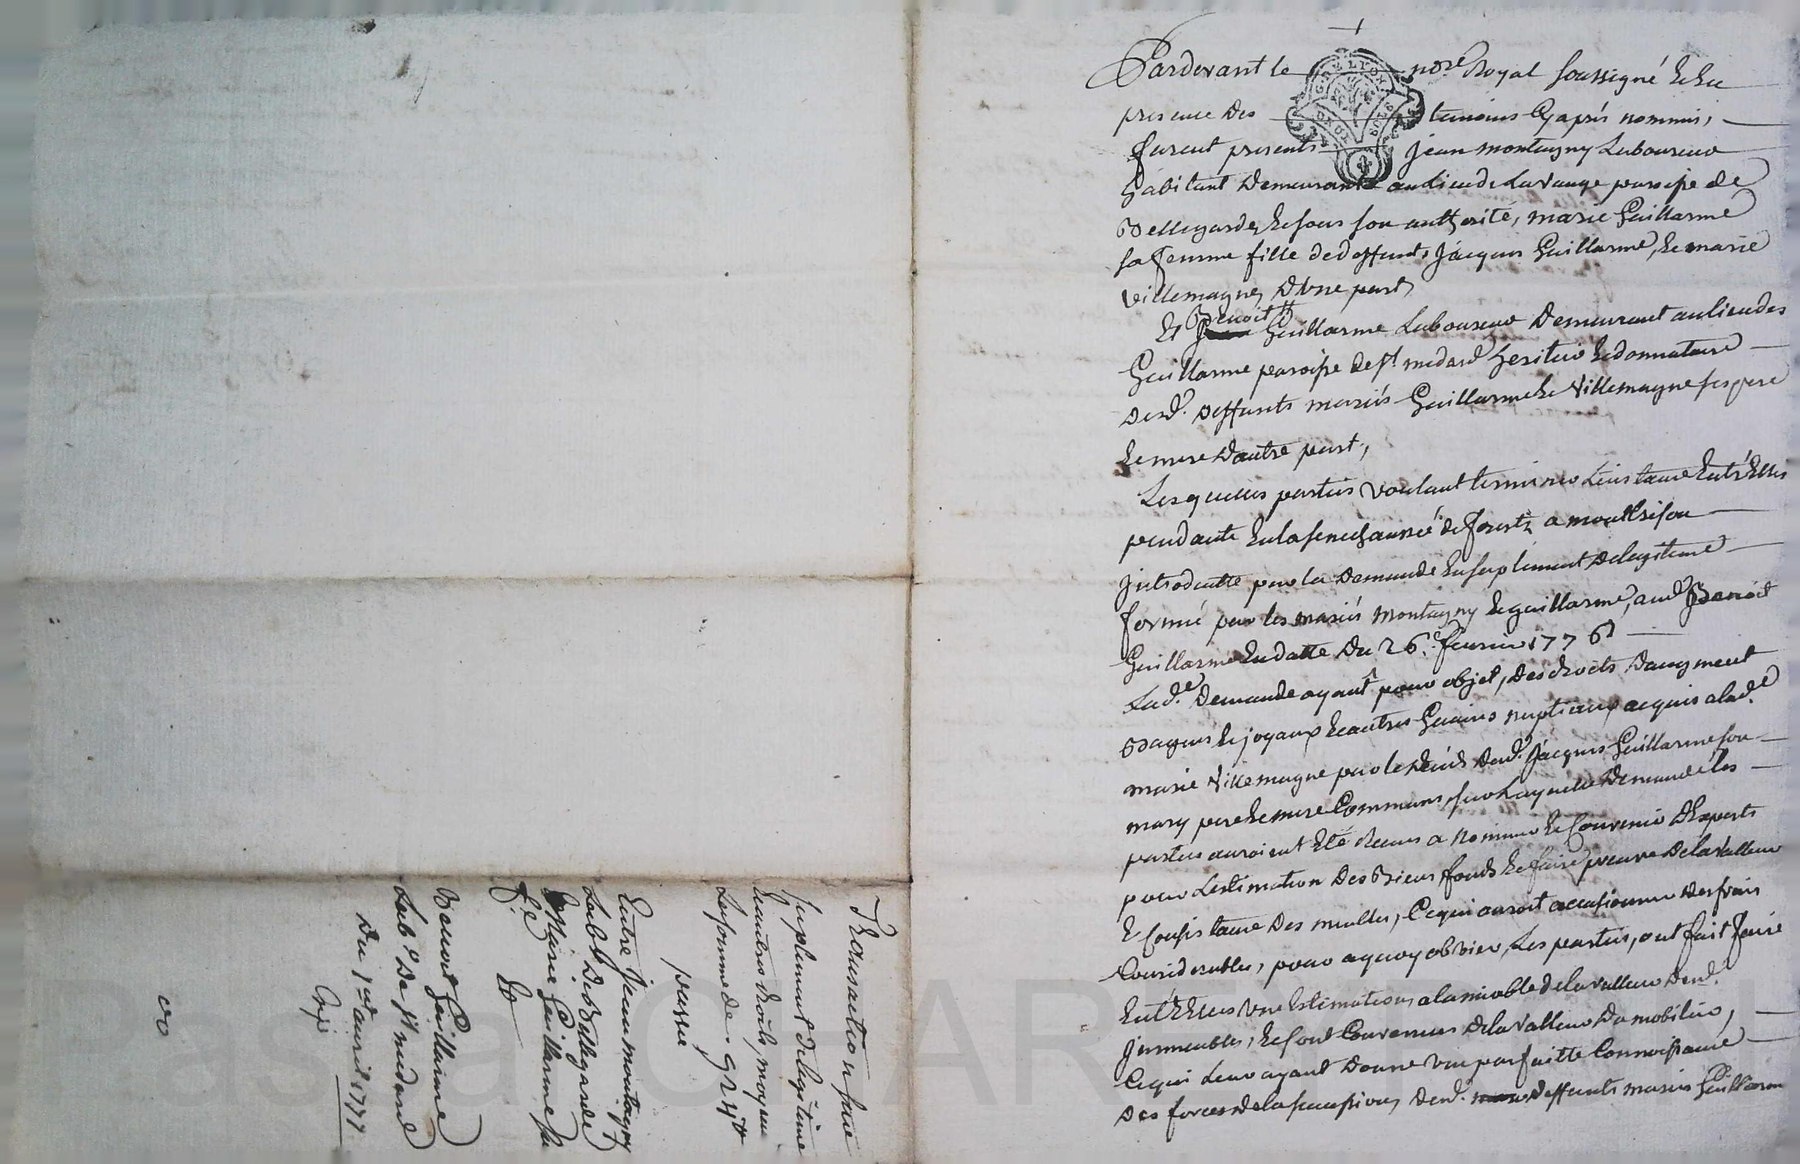 Transaction sur
suplement de legitime
Et autres droits, moyen
La somme de 924 tt
passée
Entre Jean montagny
Lab.r De Bellegarde
Et Marie Guillarme sa
f.e
Et
Benoit Guillarme
Lab.r De St medard
Du 1er avril 1777
Expé
Pardevant le no.re Royal soussigné Et En
presence Des temoins Cy après nommés,
furent presents Jean montagny Laboureur
habitant Demeurant au Lieu de Lavauge paroisse de
Bellegarde, Et sous son authorité, marie Guillarme
sa femme fille de deffunts Jacques Guillarme, Et marie
Villemagne, D'une part,
Et Benoit Guillarme Laboureur Demeurant au lieu des
Guillarme paroisse de St medard heritier Et donnataire
Desd. Deffunts mariés Guillarme Et Villemagne ses pere
Et mere D'autre part,
Lesquelles parties Voulant terminer L'instance Entr'Elles
pendante En la senechaussée de forests a montbrison
Introduitte par la Demande En suplement De legitime
formée par les mariés montagny Et guillarme, aud. Benoit
Guillarme En datte Du 26.e fevrier 1776
Lad.e Demande ayant pour objet, Des droits D'augment
Bagues Et joyaux Et autres Gains nuptiaux acquis a lad.e
marie Villemagne par le Decés dud. Jacques Guillarme son
mary pere Et mere Communs, sur Laquelle Demande Les
parties auroient Eté a nommer Et Convenir D'Experts
pour L'estimation Des Biens fonds Et faire preuve De la Valleur
Et Consistance Des meubles, Ce qui auroit occasionné Des frais
Considerables, pour a quoy obvier, Les parties, ont fait faire
Entr'Elles Une Estimation a l'amiable de la valleur Desd.
Immeubles, Et sont Convenus De la Valleur Du mobilier,
Ce qui Leur ayant Donné Une parfaitte Connoissance
Des forces de la succession, Desd. deffunts mariés Guillarme